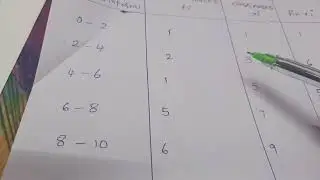 0 - 2 1 1 1
2 - 4 2 3 6
4 - 6 1 5 5
6 - 8 5 7
8 - 10 6 9